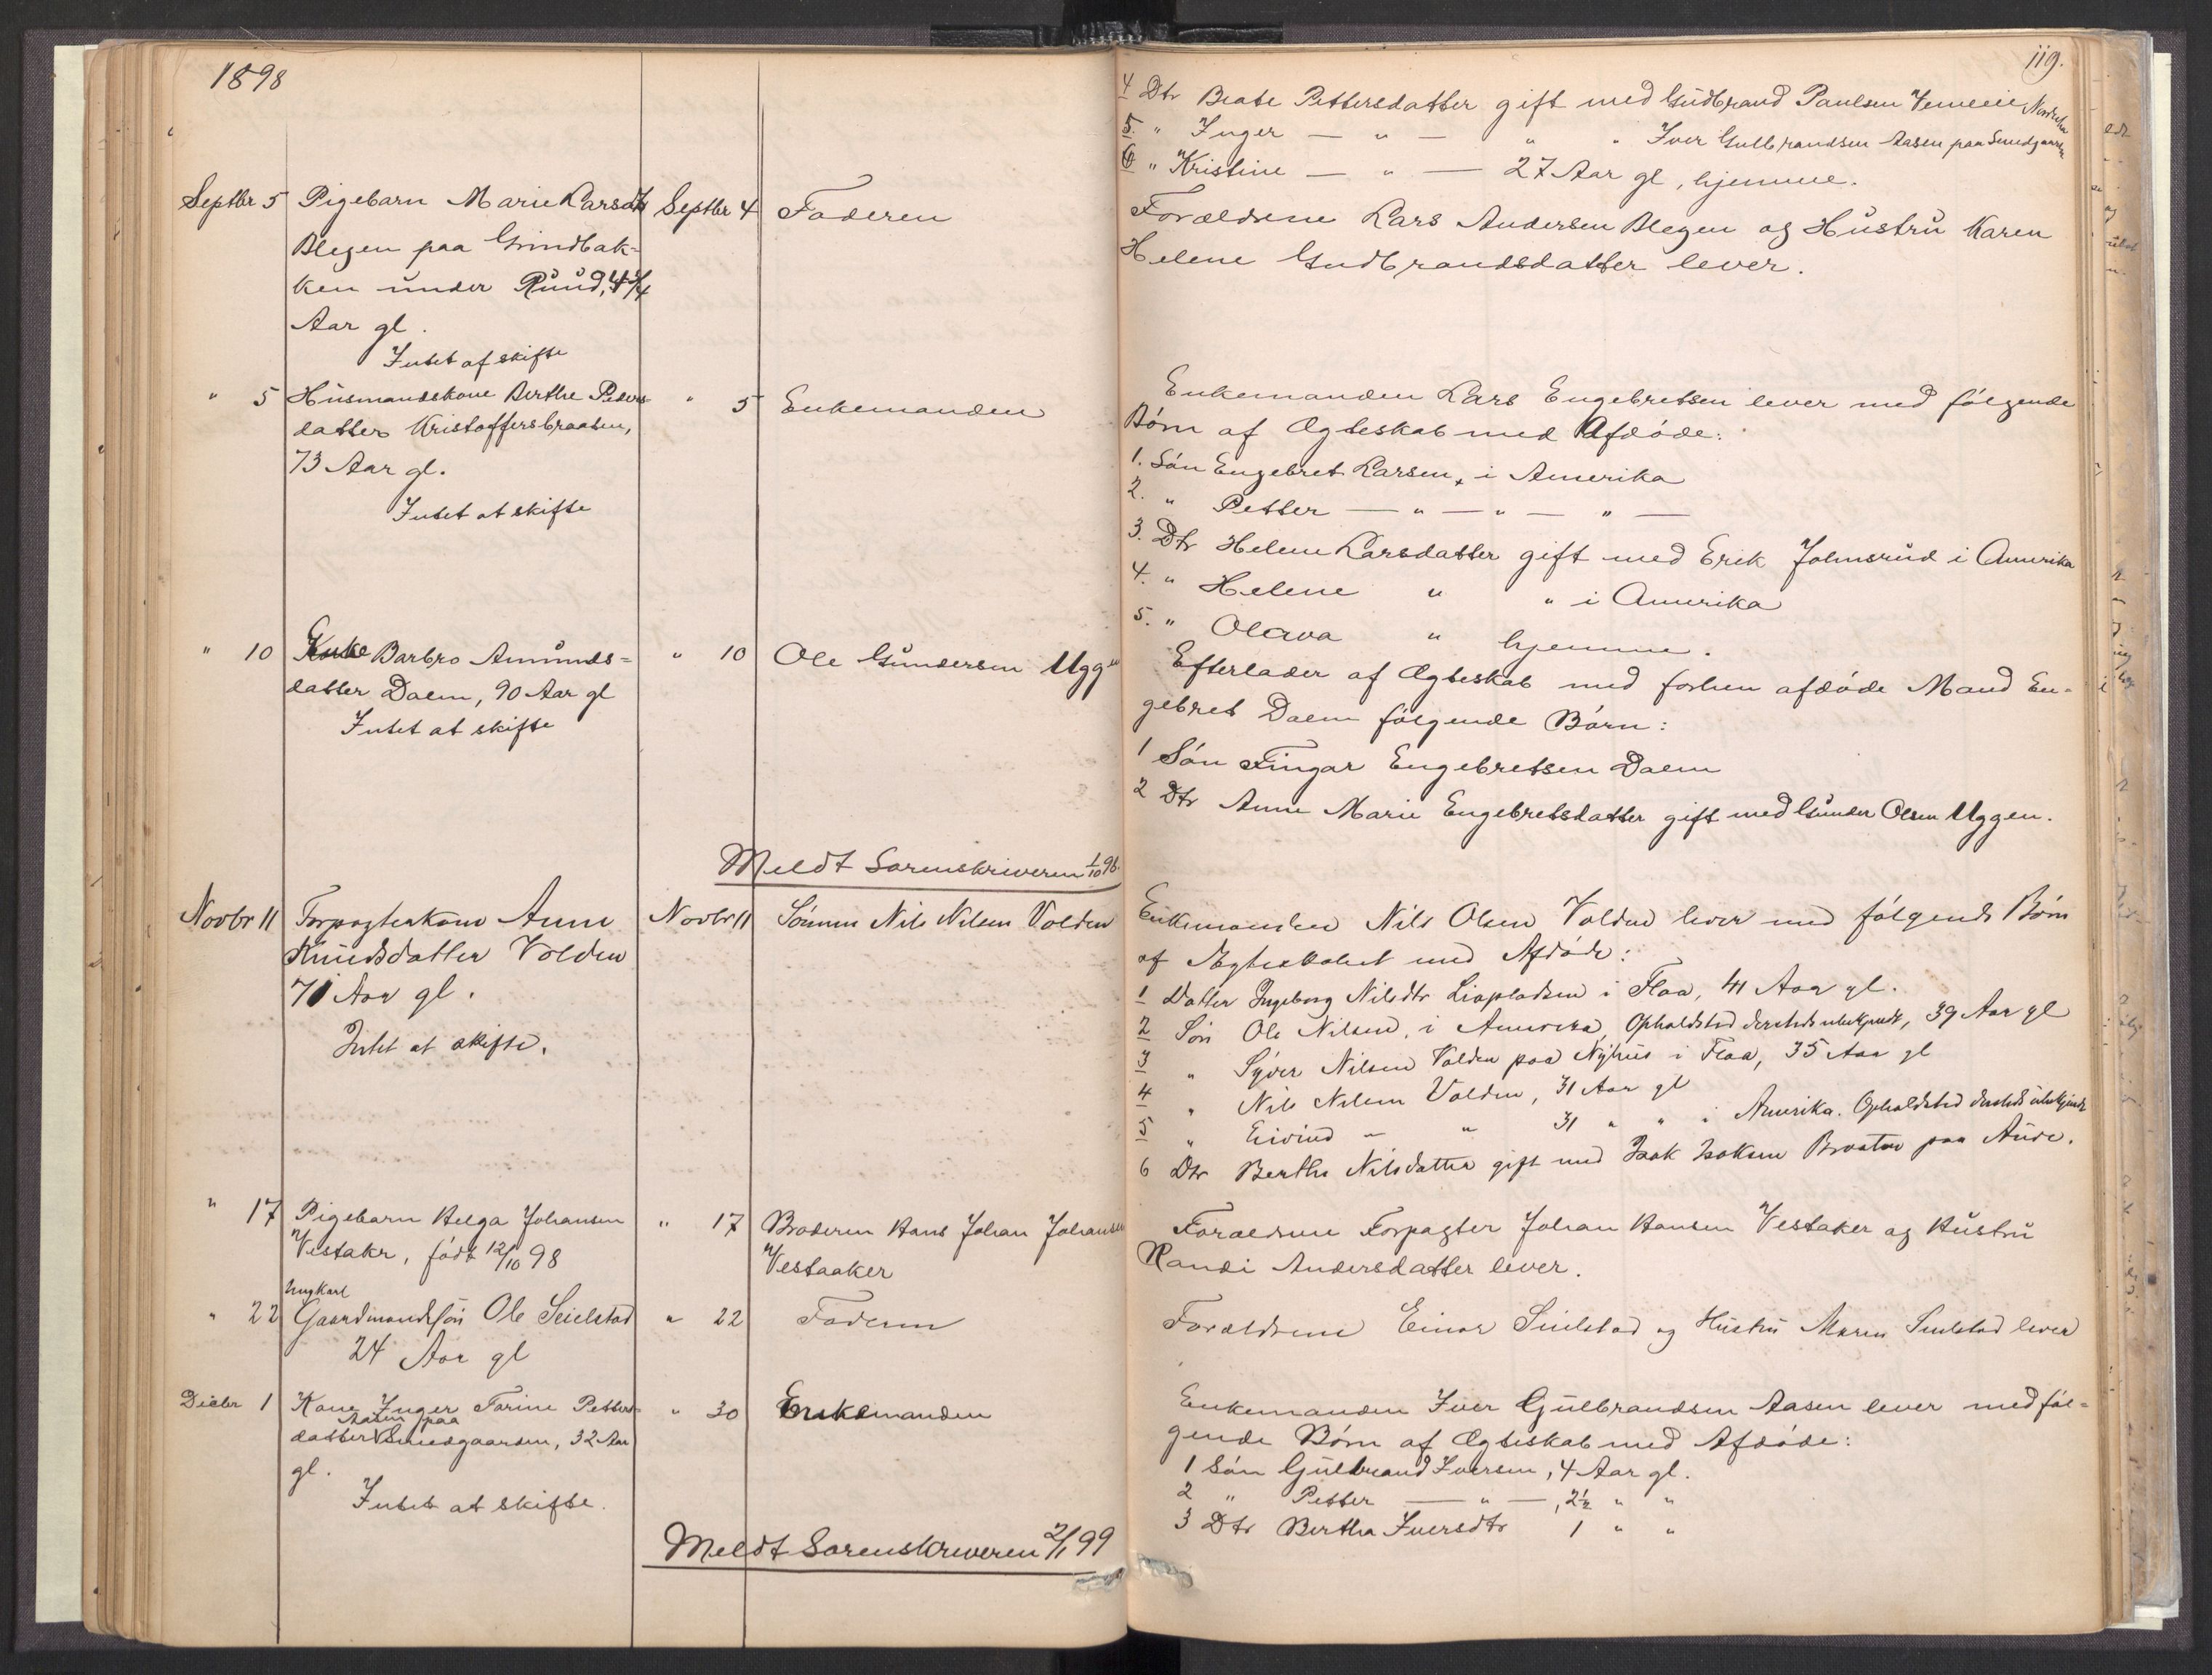 1898
Septbr 5 Pigebarn Marie Larsdtr Septbr 4 Faderen
Blegen paa Grindbak-
ken under Ruud, 4 3/4
Aar gl.
Intet at skifte
" 5 Husmandskone Berthe Peders- " 5 Enkemanden
datter Kristoffersbraaten,
73 Aar gl.
Intet at skifte
" 10 Enke Barbro Amunds= " 10 Ole Gundersen Uggen
datter Dalen, 90 Aar gl
Intet at skifte
Meldt Sorenskriveren 1/10 98.
Novbr 11 Forpagterkone Anne Novbr 11 Sønnen Nils Nilsen Volden
Knudsdatter Volden
71 Aar gl.
Intet at skifte.
" 17 Pigebarn Helga Johansen " 17 Broderen Hans Johan Johansen
Vestakr, født 12/10 98 Vestaaker
Ungkarl
" 22 Gaardmandssøn Ole Seielstad " 22 Faderen
24 Aar gl
Decbr 1 Kone Inger Tarine Petters- " 30 Enkemanden
Aasen paa
datter Smedgaarden, 32 Aar
gl.
Intet at skifte.
Meldt Sorenskriveren 2/1 99
119.
4 Dtr Beate Pettersdatter gift med Gudbrand Paulsen
5. " Inger — " — " " Iver Gulbrandsen Aasen paa Smedgaarden
6 " Kristine — " — 27 Aar gl, hjemme.
Forældrene Lars Andersen Blegen og Hustru Karen
Helene Gudbrandsdatter lever.
Enkemanden Lars Engebretsen lever med følgende
Børn af Ægteskab med Afdøde:
1. Søn Engebret Larsen, i Amerika
2. " Petter — " — " — " —
3. Dtr Helene Larsdatter gift med Erik Johnsrud i Amerika
4. " Helene " " i Amerika
5. " Olava " hjemme.
Efterlader af Ægteskab med forhen afdøde Mand En-
gebret Dalen følgende Børn:
1 Søn Fingar Engebretsen Dalen
2 Dtr Anne Marie Engebretsdatter gift med Gunder Olsen Uggen.
Enkemanden Nils Olsen Volden lever med følgende Børn
af Ægteskabet med Afdøde:
1 Datter Ingeborg Nilsdtr Liapladsen i Flaa, 41 Aar gl.
2 Søn Ole Nilsen, i Amerika, Opholdsted dersteds ubekjendt, 39 Aar gl
3 " Syver Nilsen Volden paa Nyhus i Flaa, 35 Aar gl
4 " Nils Nilsen Volden, 31 Aar gl
5 " Eivind " " 31 " " i Amerika. Opholdsted dersteds ubekjendt
6 Dtr Berthe Nilsdatter gift med Isak Isaksen paa
Forældrene Forpagter Johan Hansen Vestaker og Hustru
Randi Andersdatter lever.
Forældrene Einar Seielstad og Hustru Maren Seielstad lever
Enkemanden Iver Gulbrandsen Aasen lever med føl-
gende Børn af Ægteskab med Afdøde:
1 Søn Gulbrand Iversen, 4 Aar gl.
2 " Petter — " —, 2½ " "
3 Dtr Bertha Iversdtr 1 " "